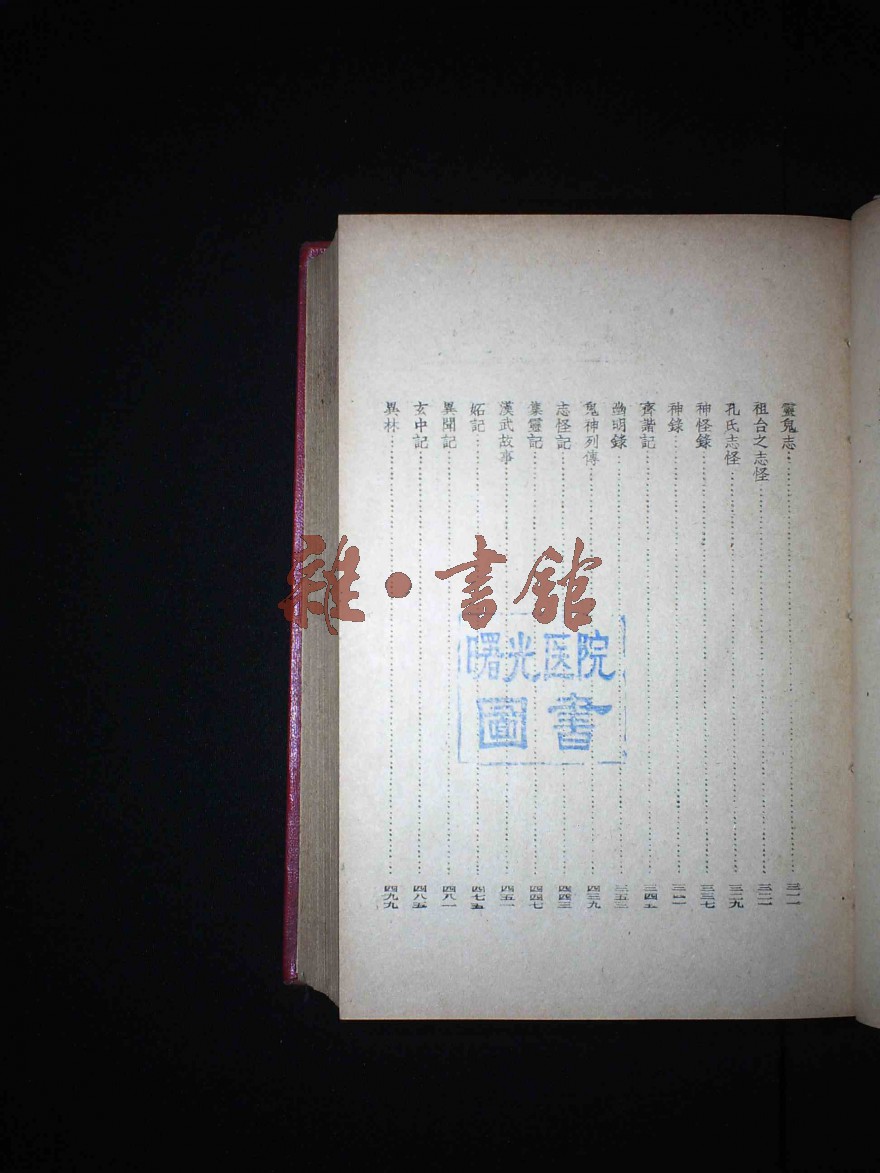 靈鬼志 三一一
祖台之志怪 三二一
孔氏志怪 三二九
神怪錄 三三七
神錄
齊諧記 三四五
幽明錄 三五三
鬼神列傳 四三九
志怪記 四四三
集靈記 四四七
漢武故事 四五一
妬記 四七五
異聞記 四八一
玄中記 四八五
異林 四九九
雜·書館
曙光医院
圖書